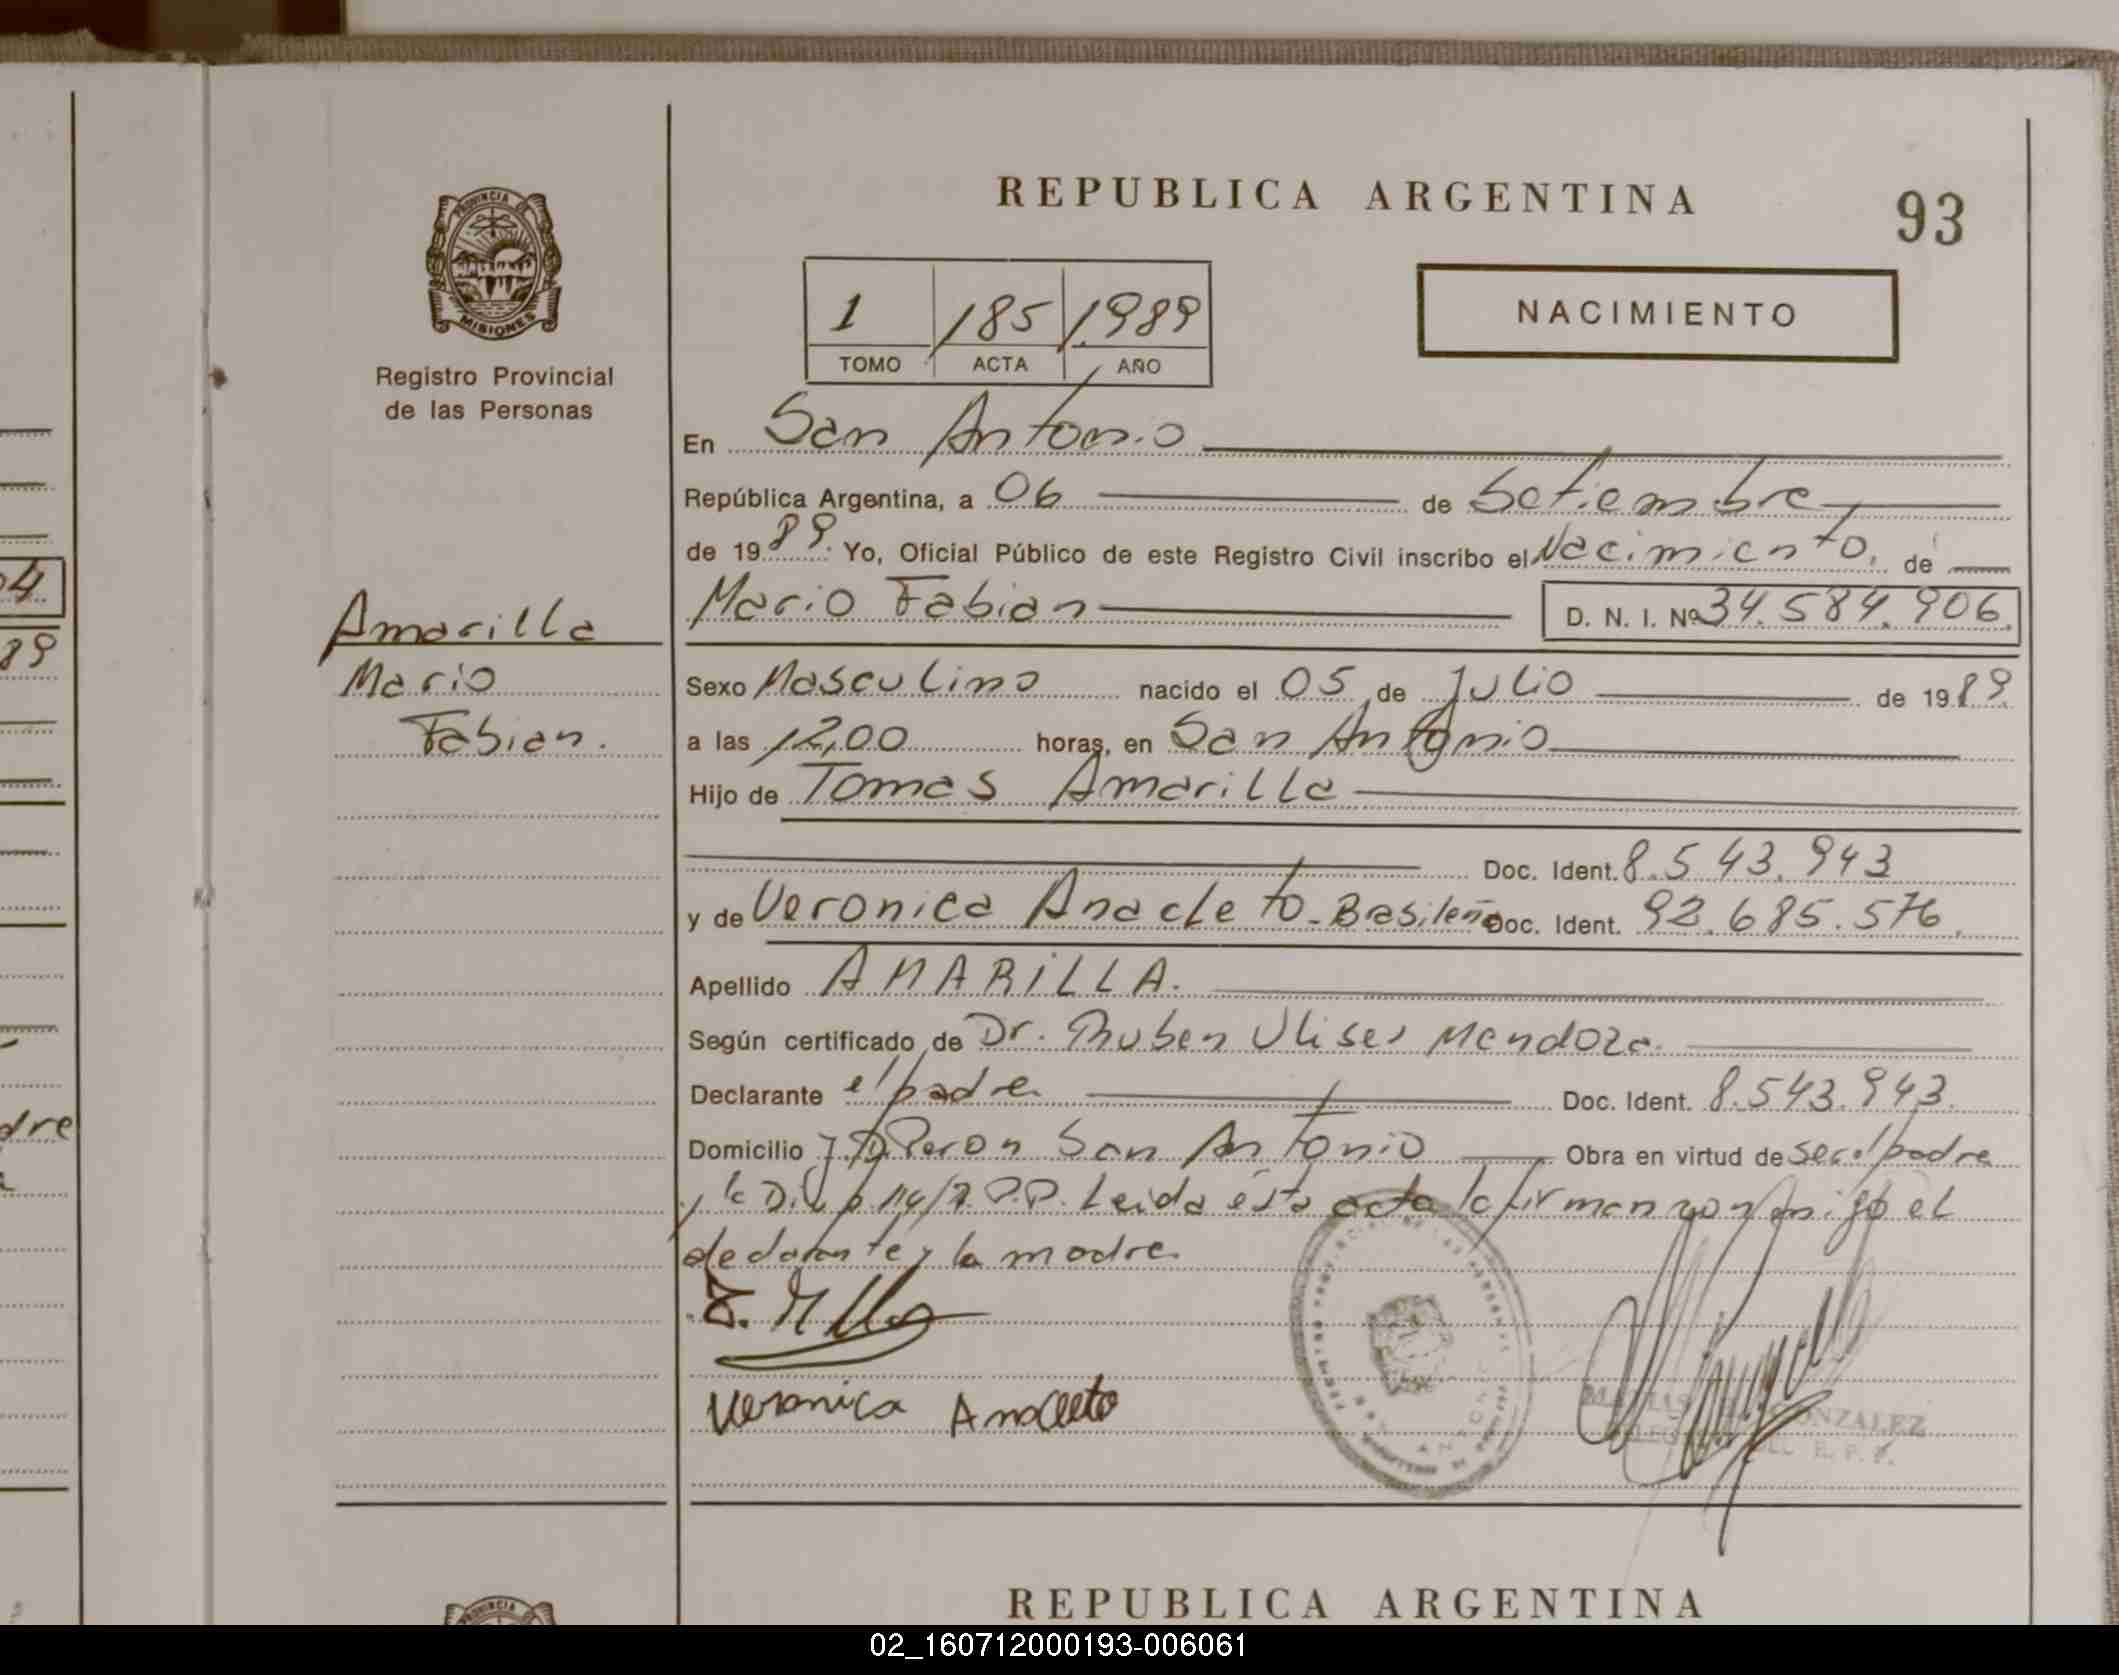 PROVINCIA DE
MISIONES
Registro Provincial
de las Personas
REPUBLICA ARGENTINA
93
1 185 1989
TOMO ACTA AÑO
NACIMIENTO
En San Antonio
República Argentina, a 06 de Setiembre
de 1989. Yo, Oficial Público de este Registro Civil inscribo el Nacimiento, de
Mario Fabian D. N. I. Nº 34.584.906.
Amarilla
Mario
Fabian.
Sexo Masculino nacido el 05 de Julio de 1989.
a las 12,00 horas, en San Antonio
Hijo de Tomas Amarilla
Doc. Ident. 8.543.943
y de Veronica Anacleto - Brasileña Doc. Ident. 92.685.576.
Apellido AMARILLA.
Según certificado de Dr. Ruben Ulises Mendoza.
Declarante el padre Doc. Ident. 8.543.943.
Domicilio J. D. Peron San Antonio Obra en virtud de ser el padre
y la Leida ésta acta la firman conmigo el
declarante y la madre.
Veronica Anacleto
GONZALEZ
REPUBLICA ARGENTINA
PROVINCIA
04
89
dre
02_160712000193-006061